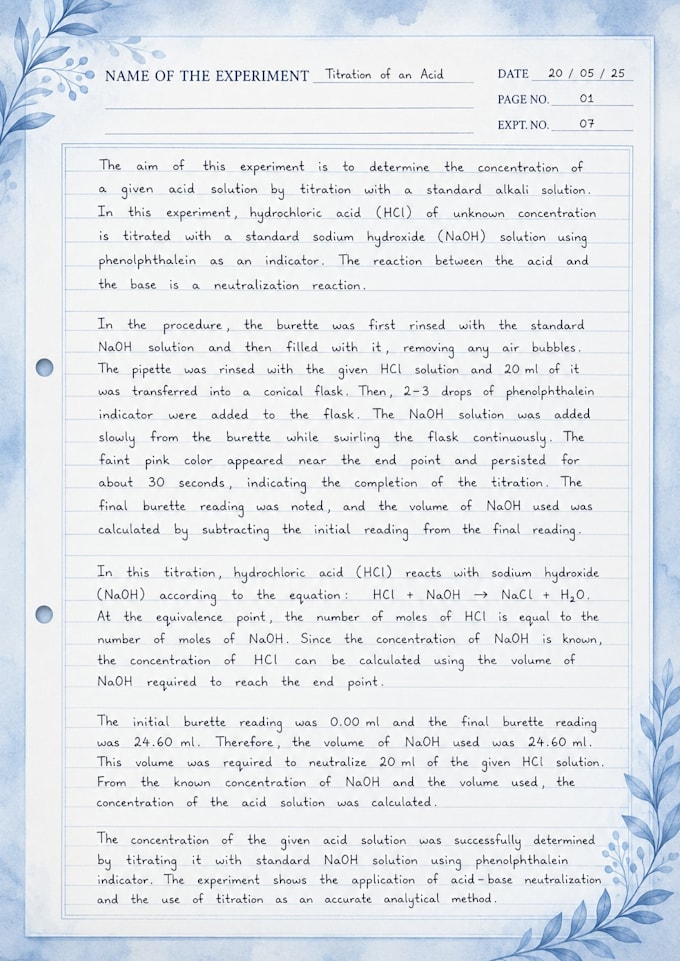 NAME OF THE EXPERIMENT Titration of an Acid
DATE 20 / 05 / 25
PAGE NO. 01
EXPT. NO. 07
The aim of this experiment is to determine the concentration of
a given acid solution by titration with a standard alkali solution.
In this experiment, hydrochloric acid (HCl) of unknown concentration
is titrated with a standard sodium hydroxide (NaOH) solution using
phenolphthalein as an indicator. The reaction between the acid and
the base is a neutralization reaction.
In the procedure, the burette was first rinsed with the standard
NaOH solution and then filled with it, removing any air bubbles.
The pipette was rinsed with the given HCl solution and 20 ml of it
was transferred into a conical flask. Then, 2-3 drops of phenolphthalein
indicator were added to the flask. The NaOH solution was added
slowly from the burette while swirling the flask continuously. The
faint pink color appeared near the end point and persisted for
about 30 seconds, indicating the completion of the titration. The
final burette reading was noted, and the volume of NaOH used was
calculated by subtracting the initial reading from the final reading.
In this titration, hydrochloric acid (HCl) reacts with sodium hydroxide
(NaOH) according to the equation: HCl + NaOH → NaCl + H₂O.
At the equivalence point, the number of moles of HCl is equal to the
number of moles of NaOH. Since the concentration of NaOH is known,
the concentration of HCl can be calculated using the volume of
NaOH required to reach the end point.
The initial burette reading was 0.00 ml and the final burette reading
was 24.60 ml. Therefore, the volume of NaOH used was 24.60 ml.
This volume was required to neutralize 20 ml of the given HCl solution.
From the known concentration of NaOH and the volume used, the
concentration of the acid solution was calculated.
The concentration of the given acid solution was successfully determined
by titrating it with standard NaOH solution using phenolphthalein
indicator. The experiment shows the application of acid-base neutralization
and the use of titration as an accurate analytical method.